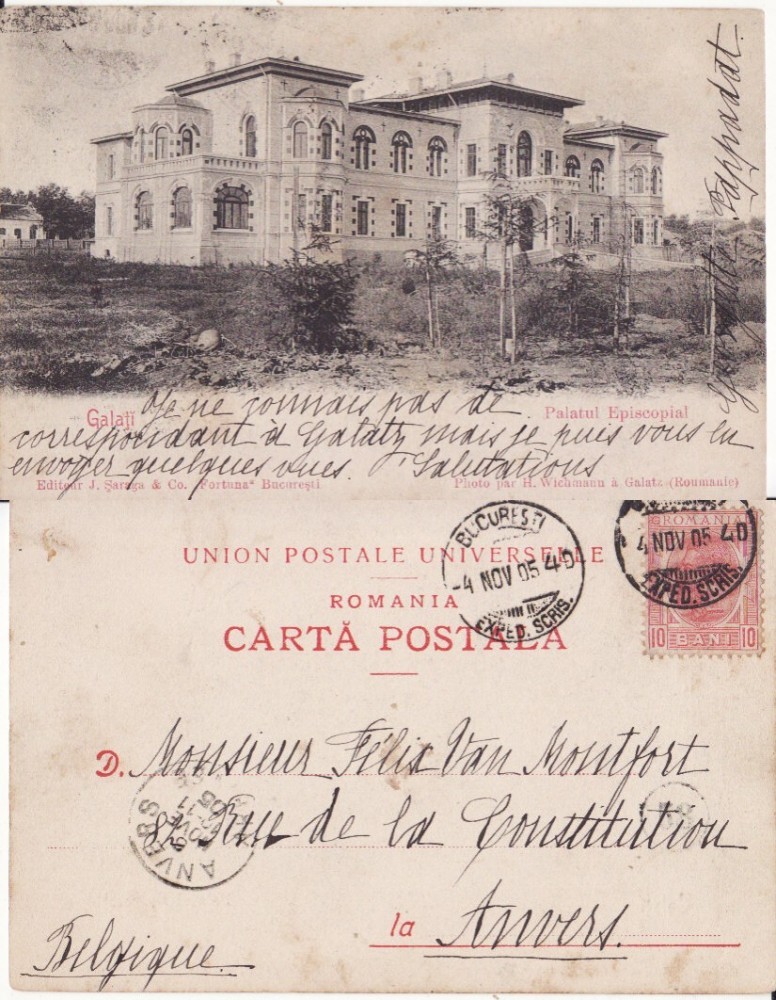 Georgette Pappadat.
Galați
Palatul Episcopial
Je ne connais pas de
correspocidant à Galatz mais je puis vous en
envoyer quelques vues. Salutations
Editeur J. Șaraga & Co. "Fortuna" București
Photo par H. Wichmann à Galatz (Roumanie)
UNION POSTALE UNIVERSELLE
ROMANIA
CARTĂ POSTALĂ
BUCURESTI
-4 NOV 05 4D
EXPED. SCRIS.
4 NOV 05 4D
EXPED. SCRIS.
ROMANIA
10 BANI 10
D. Monsieur Félix Van Montfort
Rue de la Constitution
la Anvers.
Belgique
ANVERS